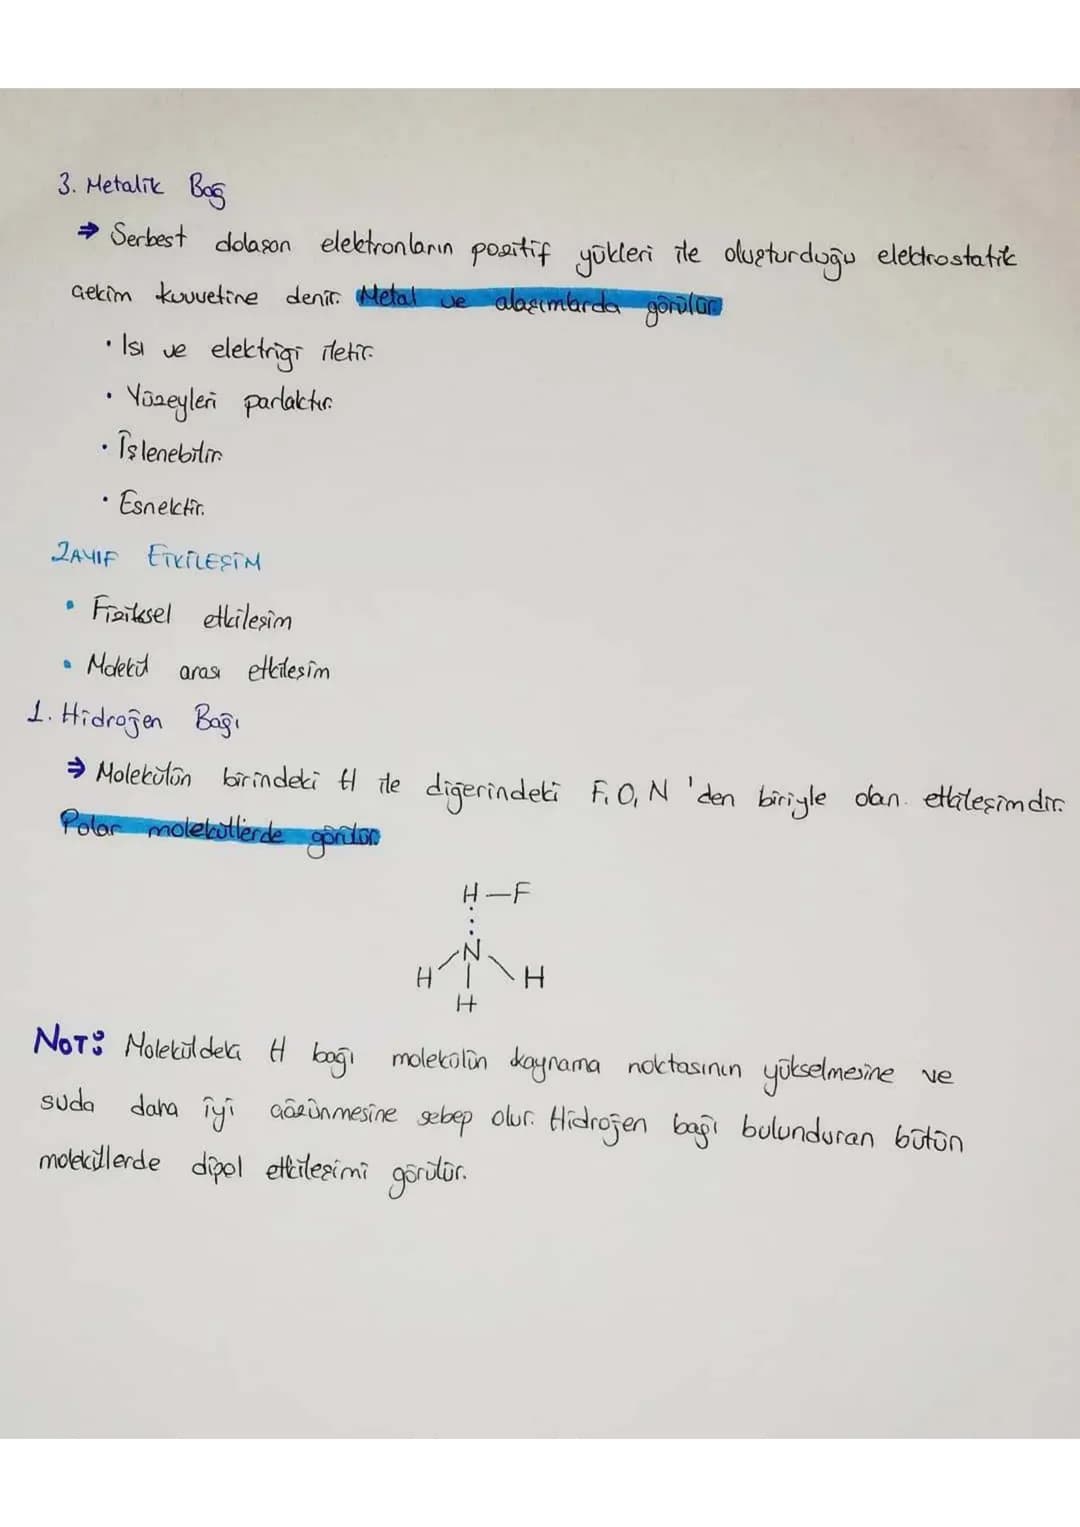 3. Metalik Bağ
⇒ Serbest dolaşan elektronların pozitif yükleri ile oluşturduğu elektrostatik
çekim kuvvetine denir. Metal ve alaşımlarda görülür.
• Isı ve elektriği iletir.
• Yüzeyleri parlaktır.
• İşlenebilir.
• Esnektir.
ZAYIF ETKİLEŞİM
• Fiziksel etkileşim
• Molekül arası etkileşim
1. Hidrojen Bağı
⇒ Molekülün birindeki H ile diğerindeki F, O, N 'den biriyle olan etkileşimdir.
Polar moleküllerde görülür.
H—F
N
H H
H
NOT: Moleküldeki H bağı molekülün kaynama noktasının yükselmesine ve
suda daha iyi çözünmesine sebep olur. Hidrojen bağı bulunduran bütün
moleküllerde dipol etkileşimi görülür.